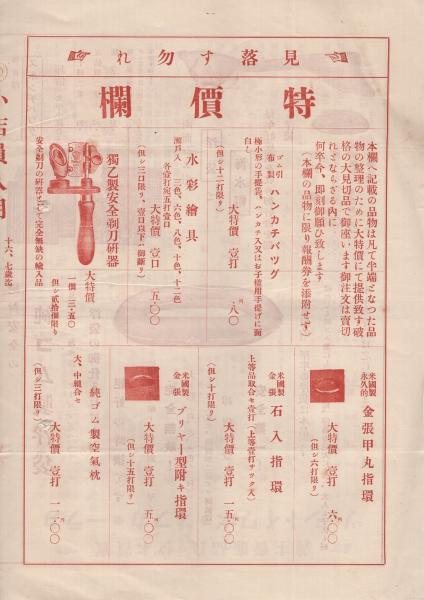 見落す勿れ
特價欄
本欄へ記載の品物は凡て半端となつた品
物の整理のために大特價にて提供致す破
格の大見切品で御座います御注文は賣切
れとならざる内に
何卒今、即刻御願ひ致します
(本欄の品物に限り報酬券を添附せず)
ゴム引
布製 ハンカチバツグ
極小形の手提袋、ハンカチ入又はお手提用手提げに面
白し
大特價 壹打 ・八〇
(但シ十二打限リ)
水彩繪具
瀬戸入 三色、六色、八色、十色、十二色
各壹打宛五打壹口
大特價 壹口 五・〇〇
(但シ三口限リ、壹口以下ハ御斷リ)
獨乙製安全剃刀研器
大特價
一個 三・五〇
但シ貳拾個限リ
安全剃刀の研器として完全無缺の輸入品
米國製
永久的 金張甲丸指環
大特價 壹打 六・〇〇
(但シ六打限リ)
米國製
金張 石入指環
上等品取合セ壹打(上等壹打サツク入)
大特價 壹打 一五・〇〇
(但シ十打限リ)
米國製
金張 プリヤー型附キ指環
大特價 壹打 五・〇〇
(但シ十五打限リ)
純ゴム製空氣枕
大、中組合セ
大特價 壹打 一二・〇〇
(但シ三打限リ)
十六、七歳迄